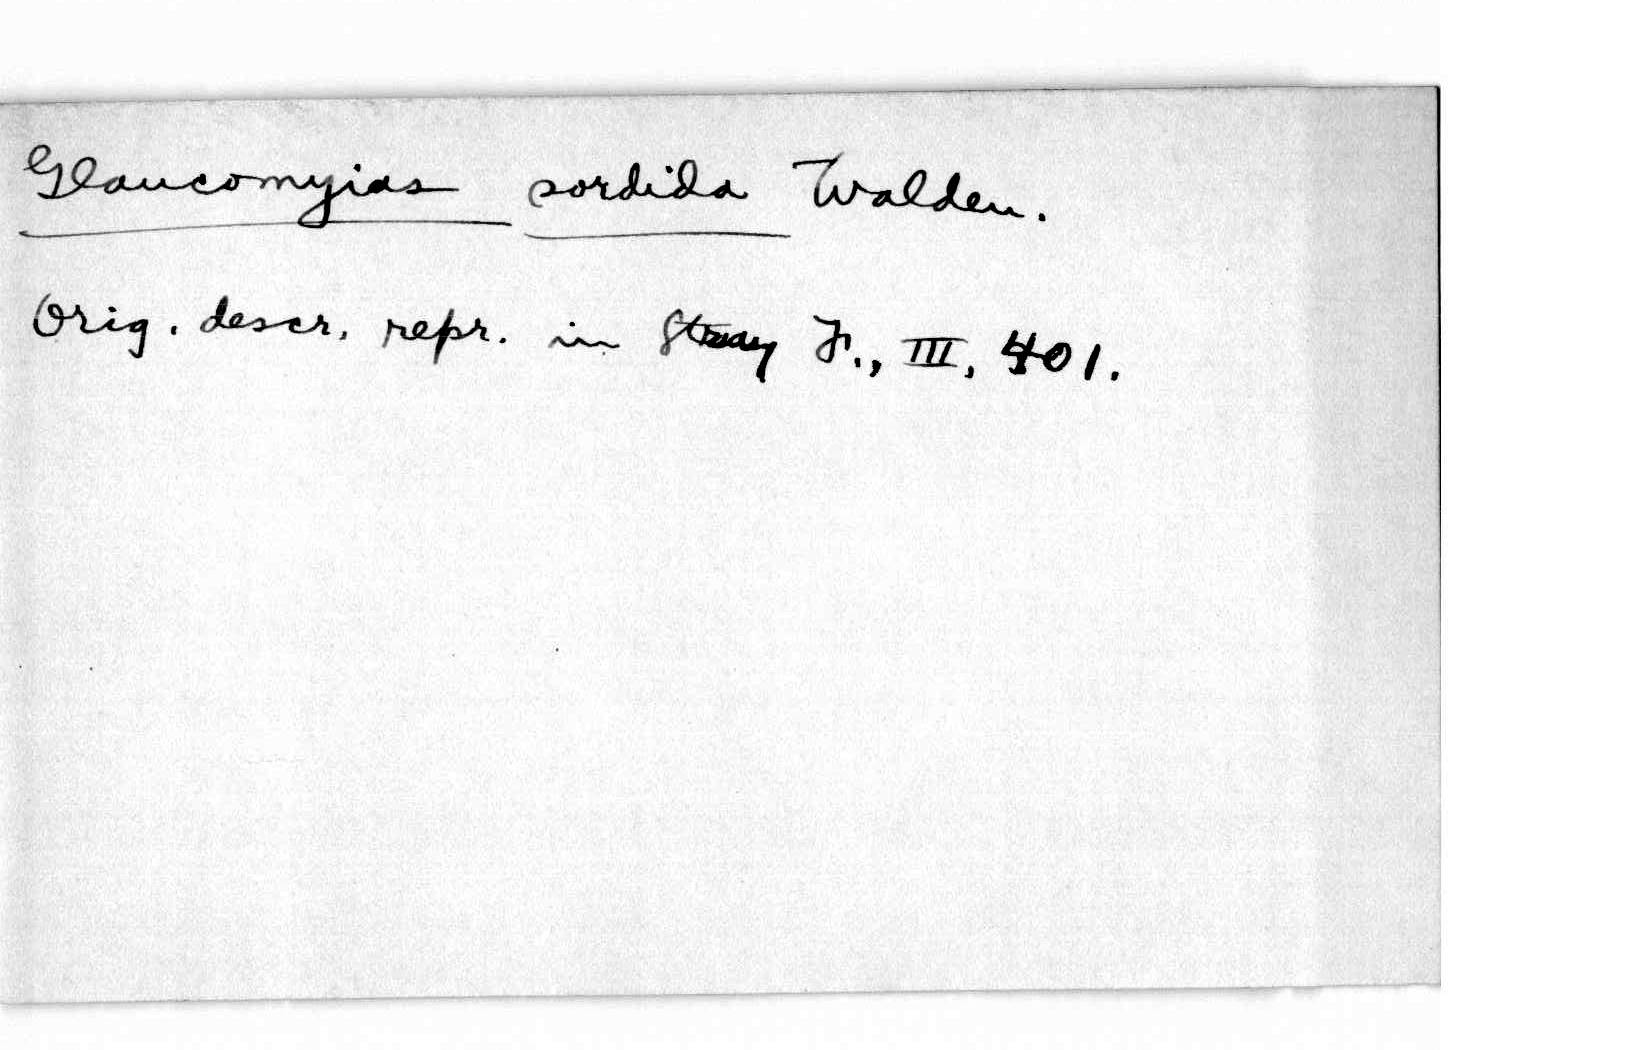 Glaucomyias sordida Walden.
Orig. descr. repr. in Stray F., III, 401.